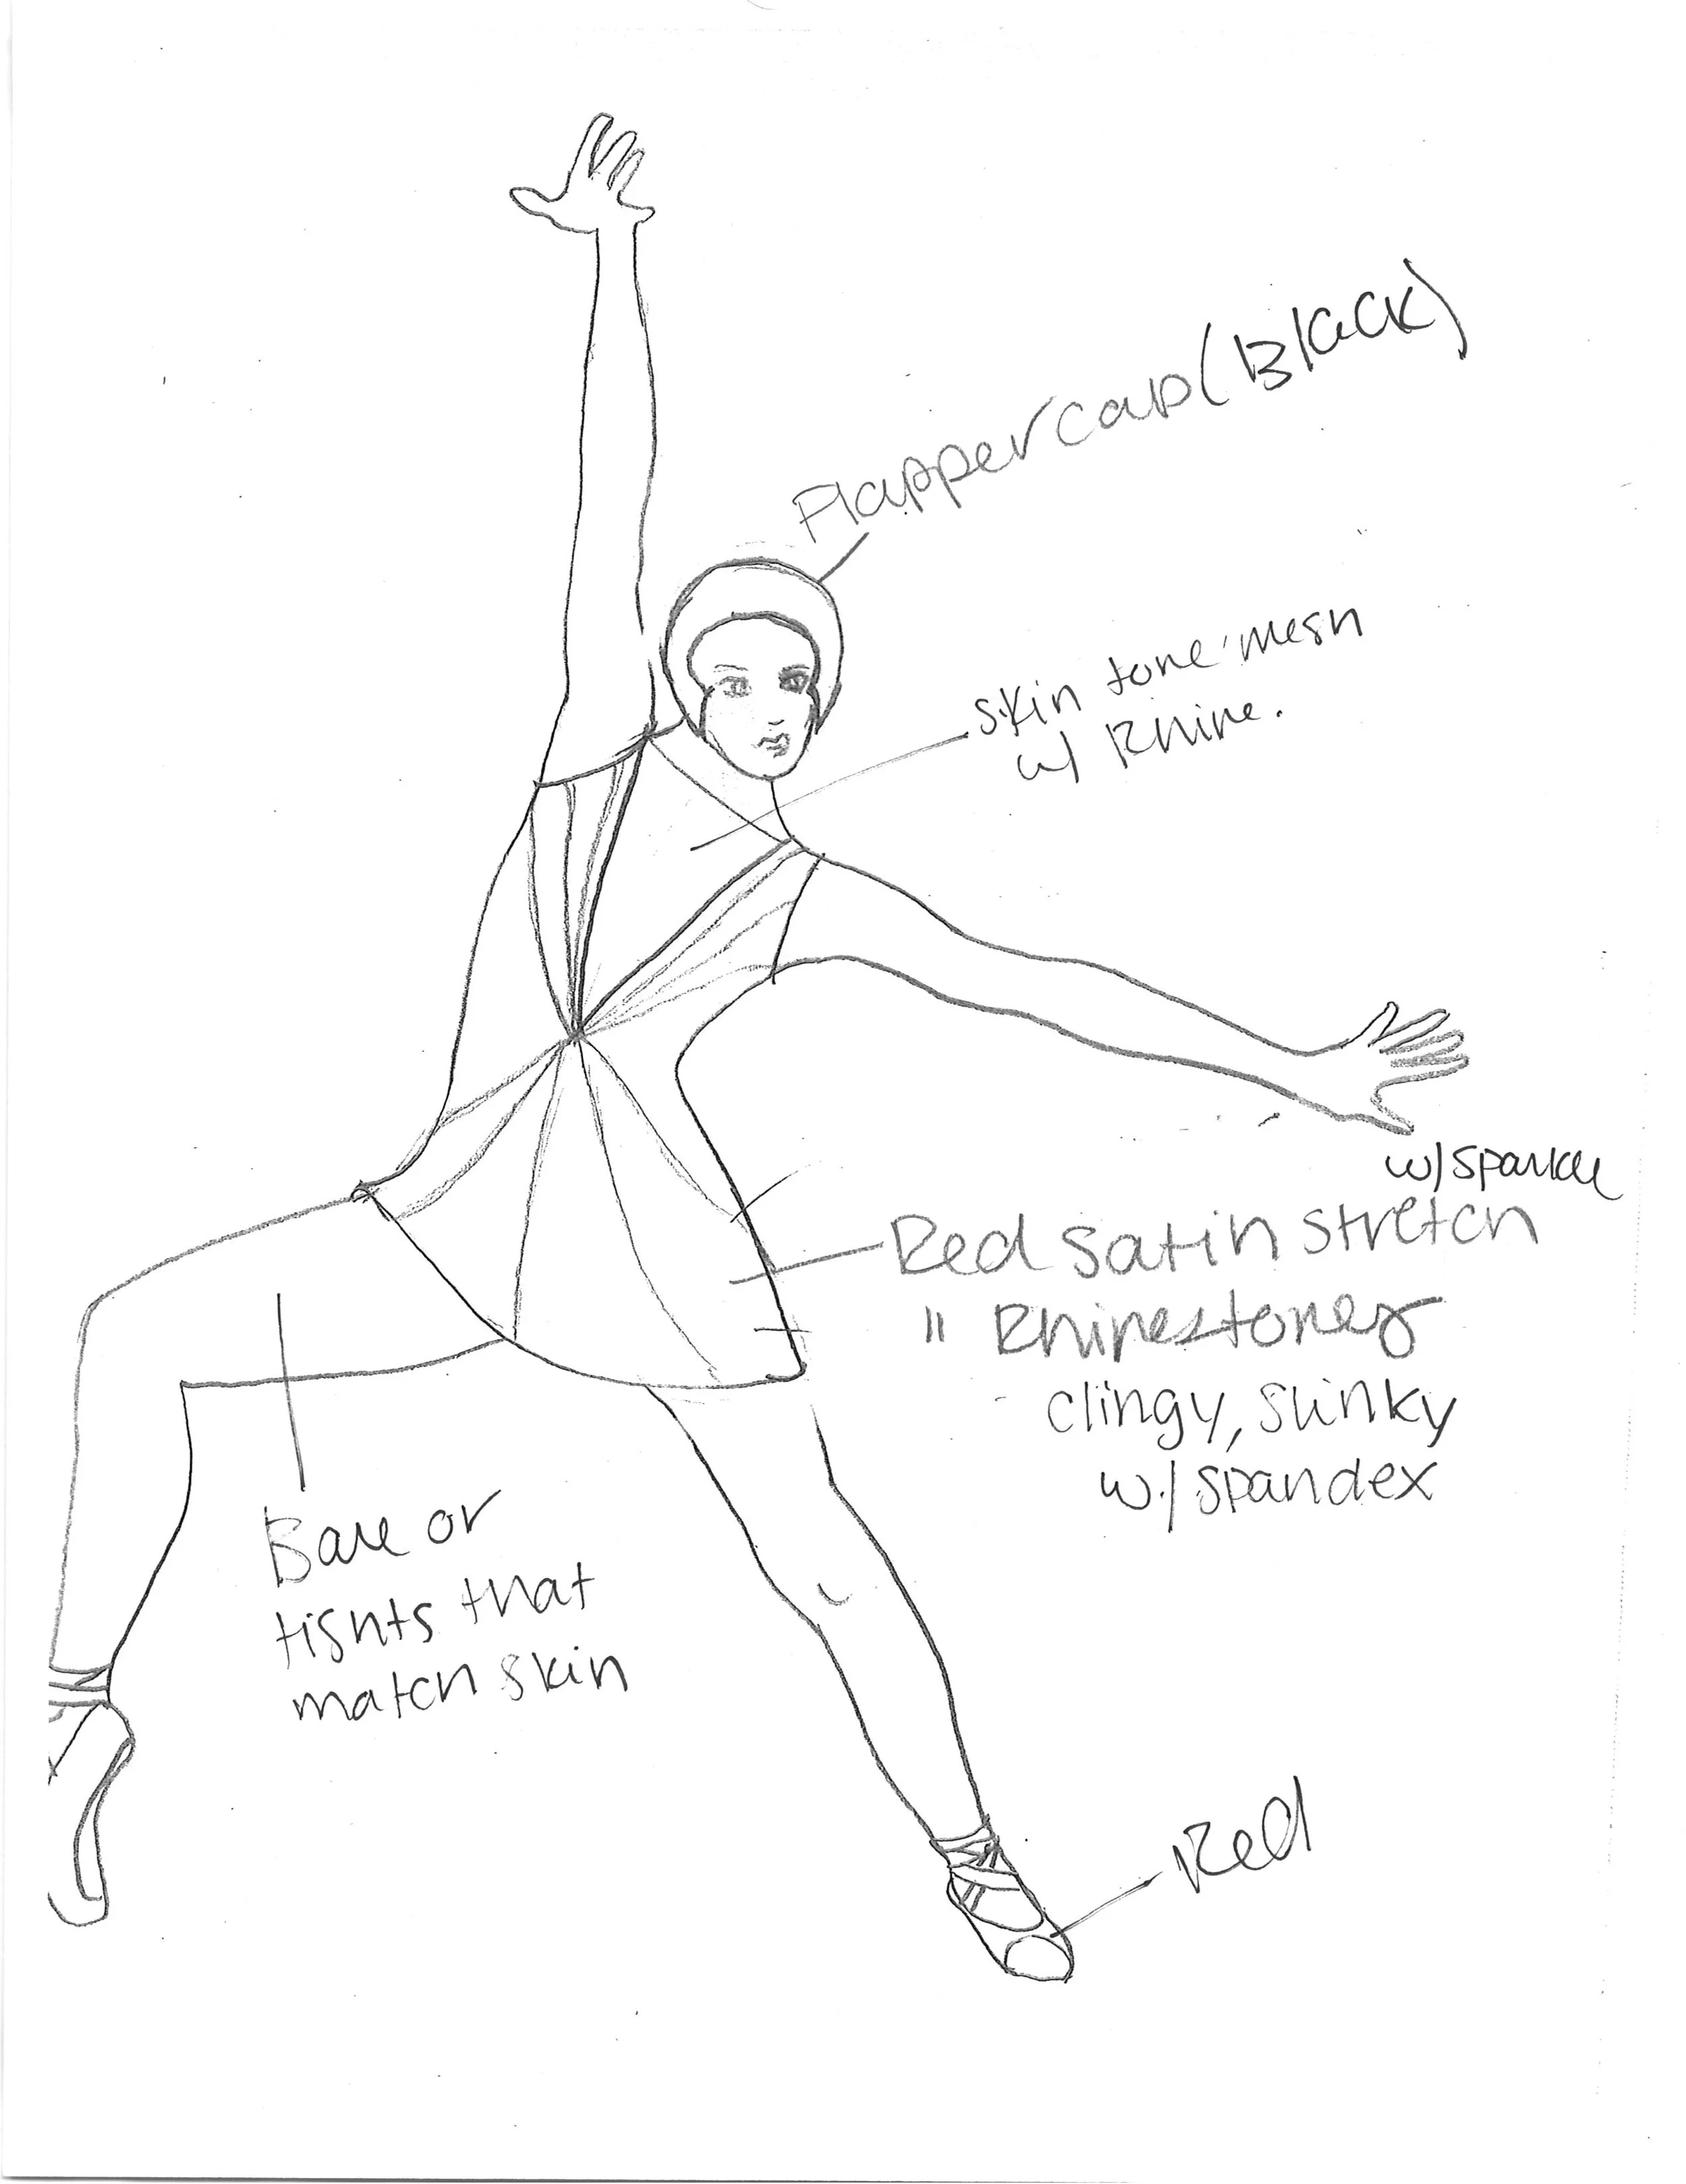 Flapper cap (Black)
skin tone mesh
w/ Rhine.
w/ sparkle
Red satin stretch
" Rhinestones
clingy, slinky
w/ spandex
Bare or
tights that
match skin
Red